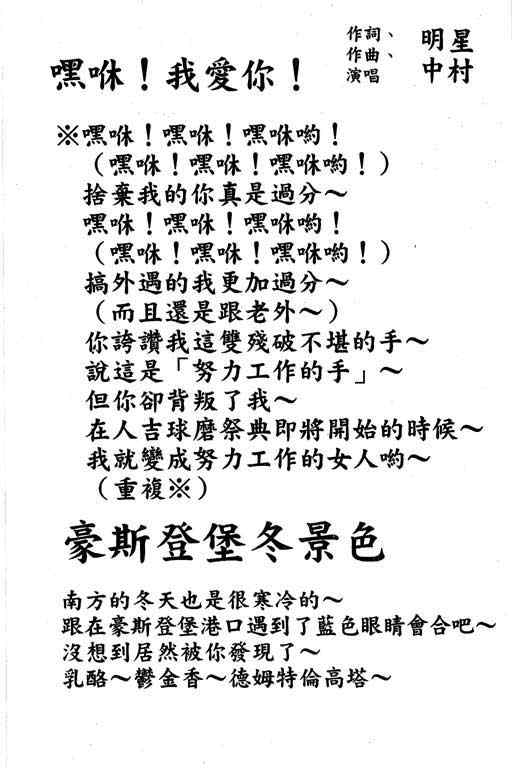 嘿咻！我愛你！
作詞、
作曲、
演唱
明星
中村
※嘿咻！嘿咻！嘿咻喲！
（嘿咻！嘿咻！嘿咻喲！）
捨棄我的你真是過分～
嘿咻！嘿咻！嘿咻喲！
（嘿咻！嘿咻！嘿咻喲！）
搞外遇的我更加過分～
（而且還是跟老外～）
你誇讚我這雙殘破不堪的手～
說這是「努力工作的手」～
但你卻背叛了我～
在人吉球磨祭典即將開始的時候～
我就變成努力工作的女人喲～
（重複※）
豪斯登堡冬景色
南方的冬天也是很寒冷的～
跟在豪斯登堡港口遇到了藍色眼睛會合吧～
沒想到居然被你發現了～
乳酪～鬱金香～德姆特倫高塔～